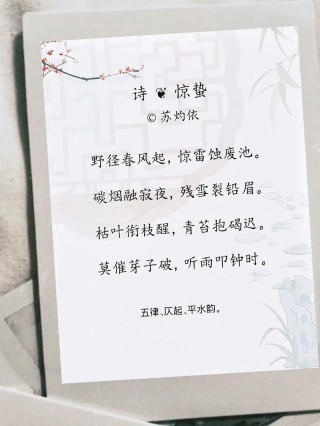 诗 ❦ 惊蛰
© 苏灼依
野径春风起，惊雷蚀废池。
碳烟融寂夜，残雪裂铅眉。
枯叶衔枝醒，青苔抱碣迟。
莫催芽子破，听雨叩钟时。
五律、仄起、平水韵。